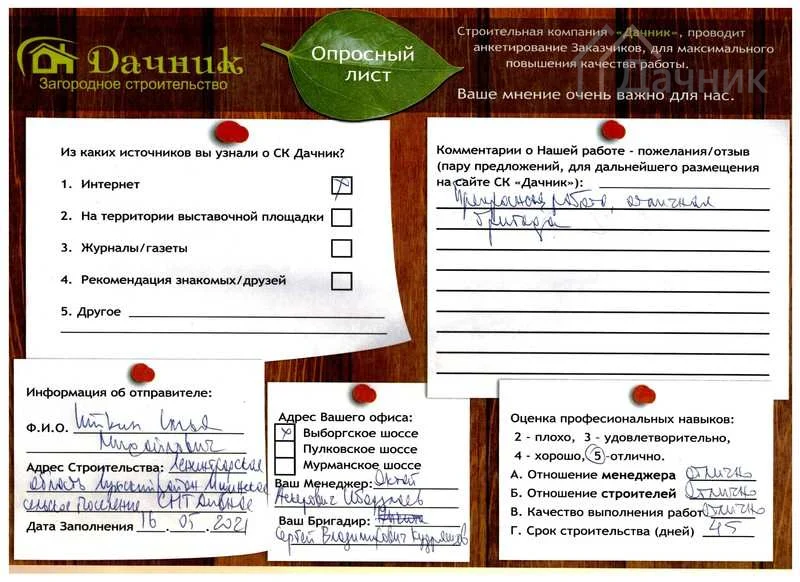 Дачник
Загородное строительство
Опросный
лист
Строительная компания «Дачник», проводит
анкетирование Заказчиков, для максимального
повышения качества работы.
Ваше мнение очень важно для нас.
Дачник
Из каких источников вы узнали о СК Дачник?
1. Интернет x
2. На территории выставочной площадки
3. Журналы/газеты
4. Рекомендация знакомых/друзей
5. Другое
Комментарии о Нашей работе - пожелания/отзыв
(пару предложений, для дальнейшего размещения
на сайте СК «Дачник»):
Прекрасная работа, отличная
бригада
Информация об отправителе:
Ф.И.О. Илья
Михайлович
Адрес Строительства: Ленинградская
область Лужский район Мшинское
сельское поселение СНТ Дивное
Дата Заполнения 16.05.2021
Адрес Вашего офиса:
x Выборгское шоссе
Пулковское шоссе
Мурманское шоссе
Ваш Менеджер: Октай
Ваш Бригадир:
Сергей Владимирович Кудряшов
Оценка профессиональных навыков:
2 - плохо, 3 - удовлетворительно,
4 - хорошо, 5 -отлично.
А. Отношение менеджера отлично
Б. Отношение строителей отлично
В. Качество выполнения работ отлично
Г. Срок строительства (дней) 45